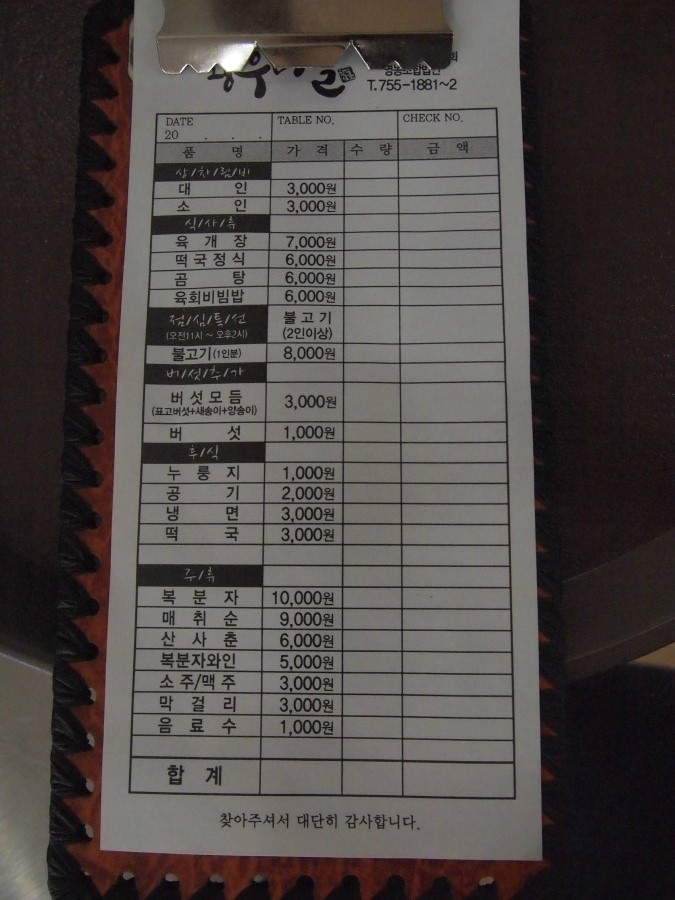 영농조합법인
T.755-1881~2
DATE TABLE NO. CHECK NO.
20 . . .
품 명 가 격 수 량 금 액
상/차/림/비
대 인 3,000원
소 인 3,000원
식/사/류
육 개 장 7,000원
떡국정식 6,000원
곰 탕 6,000원
육회비빔밥 6,000원
점/심/특/선 불고기
(오전11시 ~ 오후2시) (2인이상)
불고기(1인분) 8,000원
버/섯/추/가
버섯모듬 3,000원
(표고버섯+새송이+양송이)
버 섯 1,000원
후/식
누 룽 지 1,000원
공 기 2,000원
냉 면 3,000원
떡 국 3,000원
주/류
복 분 자 10,000원
매 취 순 9,000원
산 사 춘 6,000원
복분자와인 5,000원
소주/맥주 3,000원
막 걸 리 3,000원
음 료 수 1,000원
합 계
찾아주셔서 대단히 감사합니다.